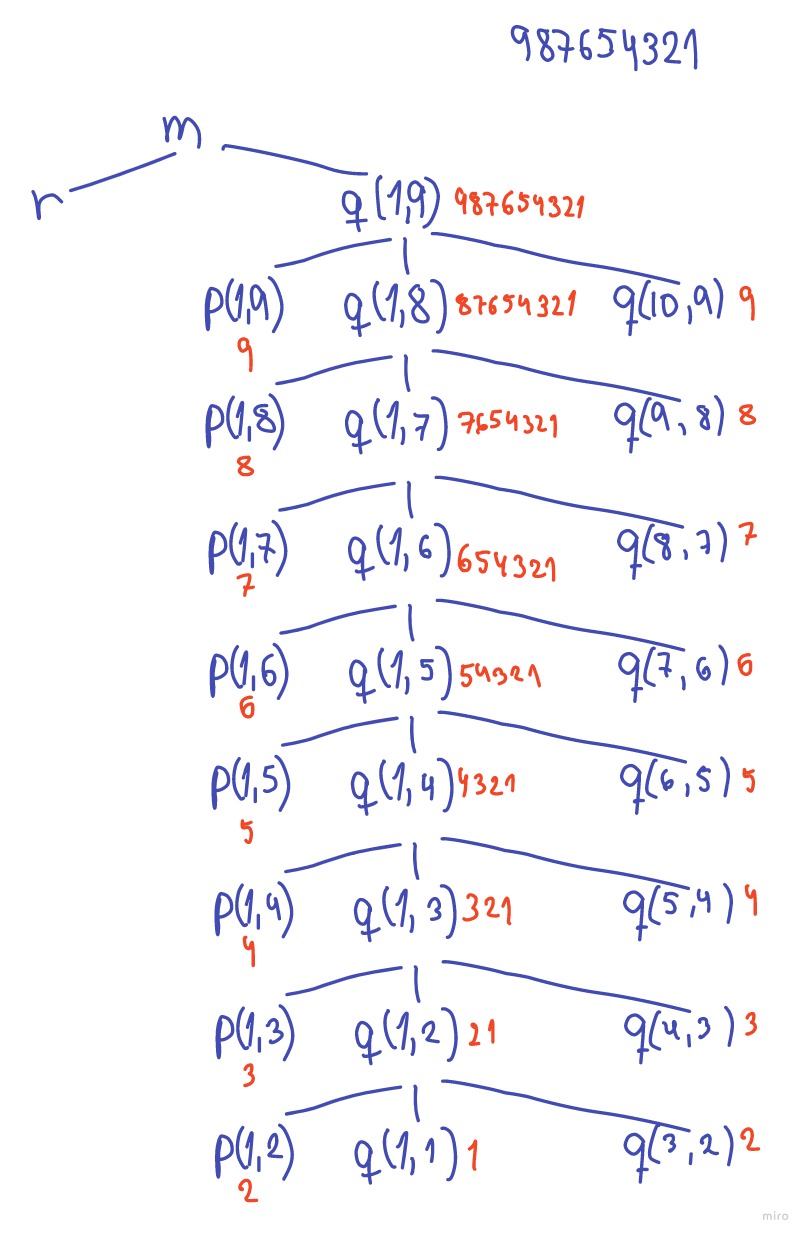 987654321
m
r
q(1,9) 987654321
p(1,9) q(1,8) 87654321 q(10,9) 9
9
p(1,8) q(1,7) 7654321 q(9,8) 8
8
p(1,7) q(1,6) 654321 q(8,7) 7
7
p(1,6) q(1,5) 54321 q(7,6) 6
6
p(1,5) q(1,4) 4321 q(6,5) 5
5
p(1,4) q(1,3) 321 q(5,4) 4
4
p(1,3) q(1,2) 21 q(4,3) 3
3
p(1,2) q(1,1) 1 q(3,2) 2
2
miro